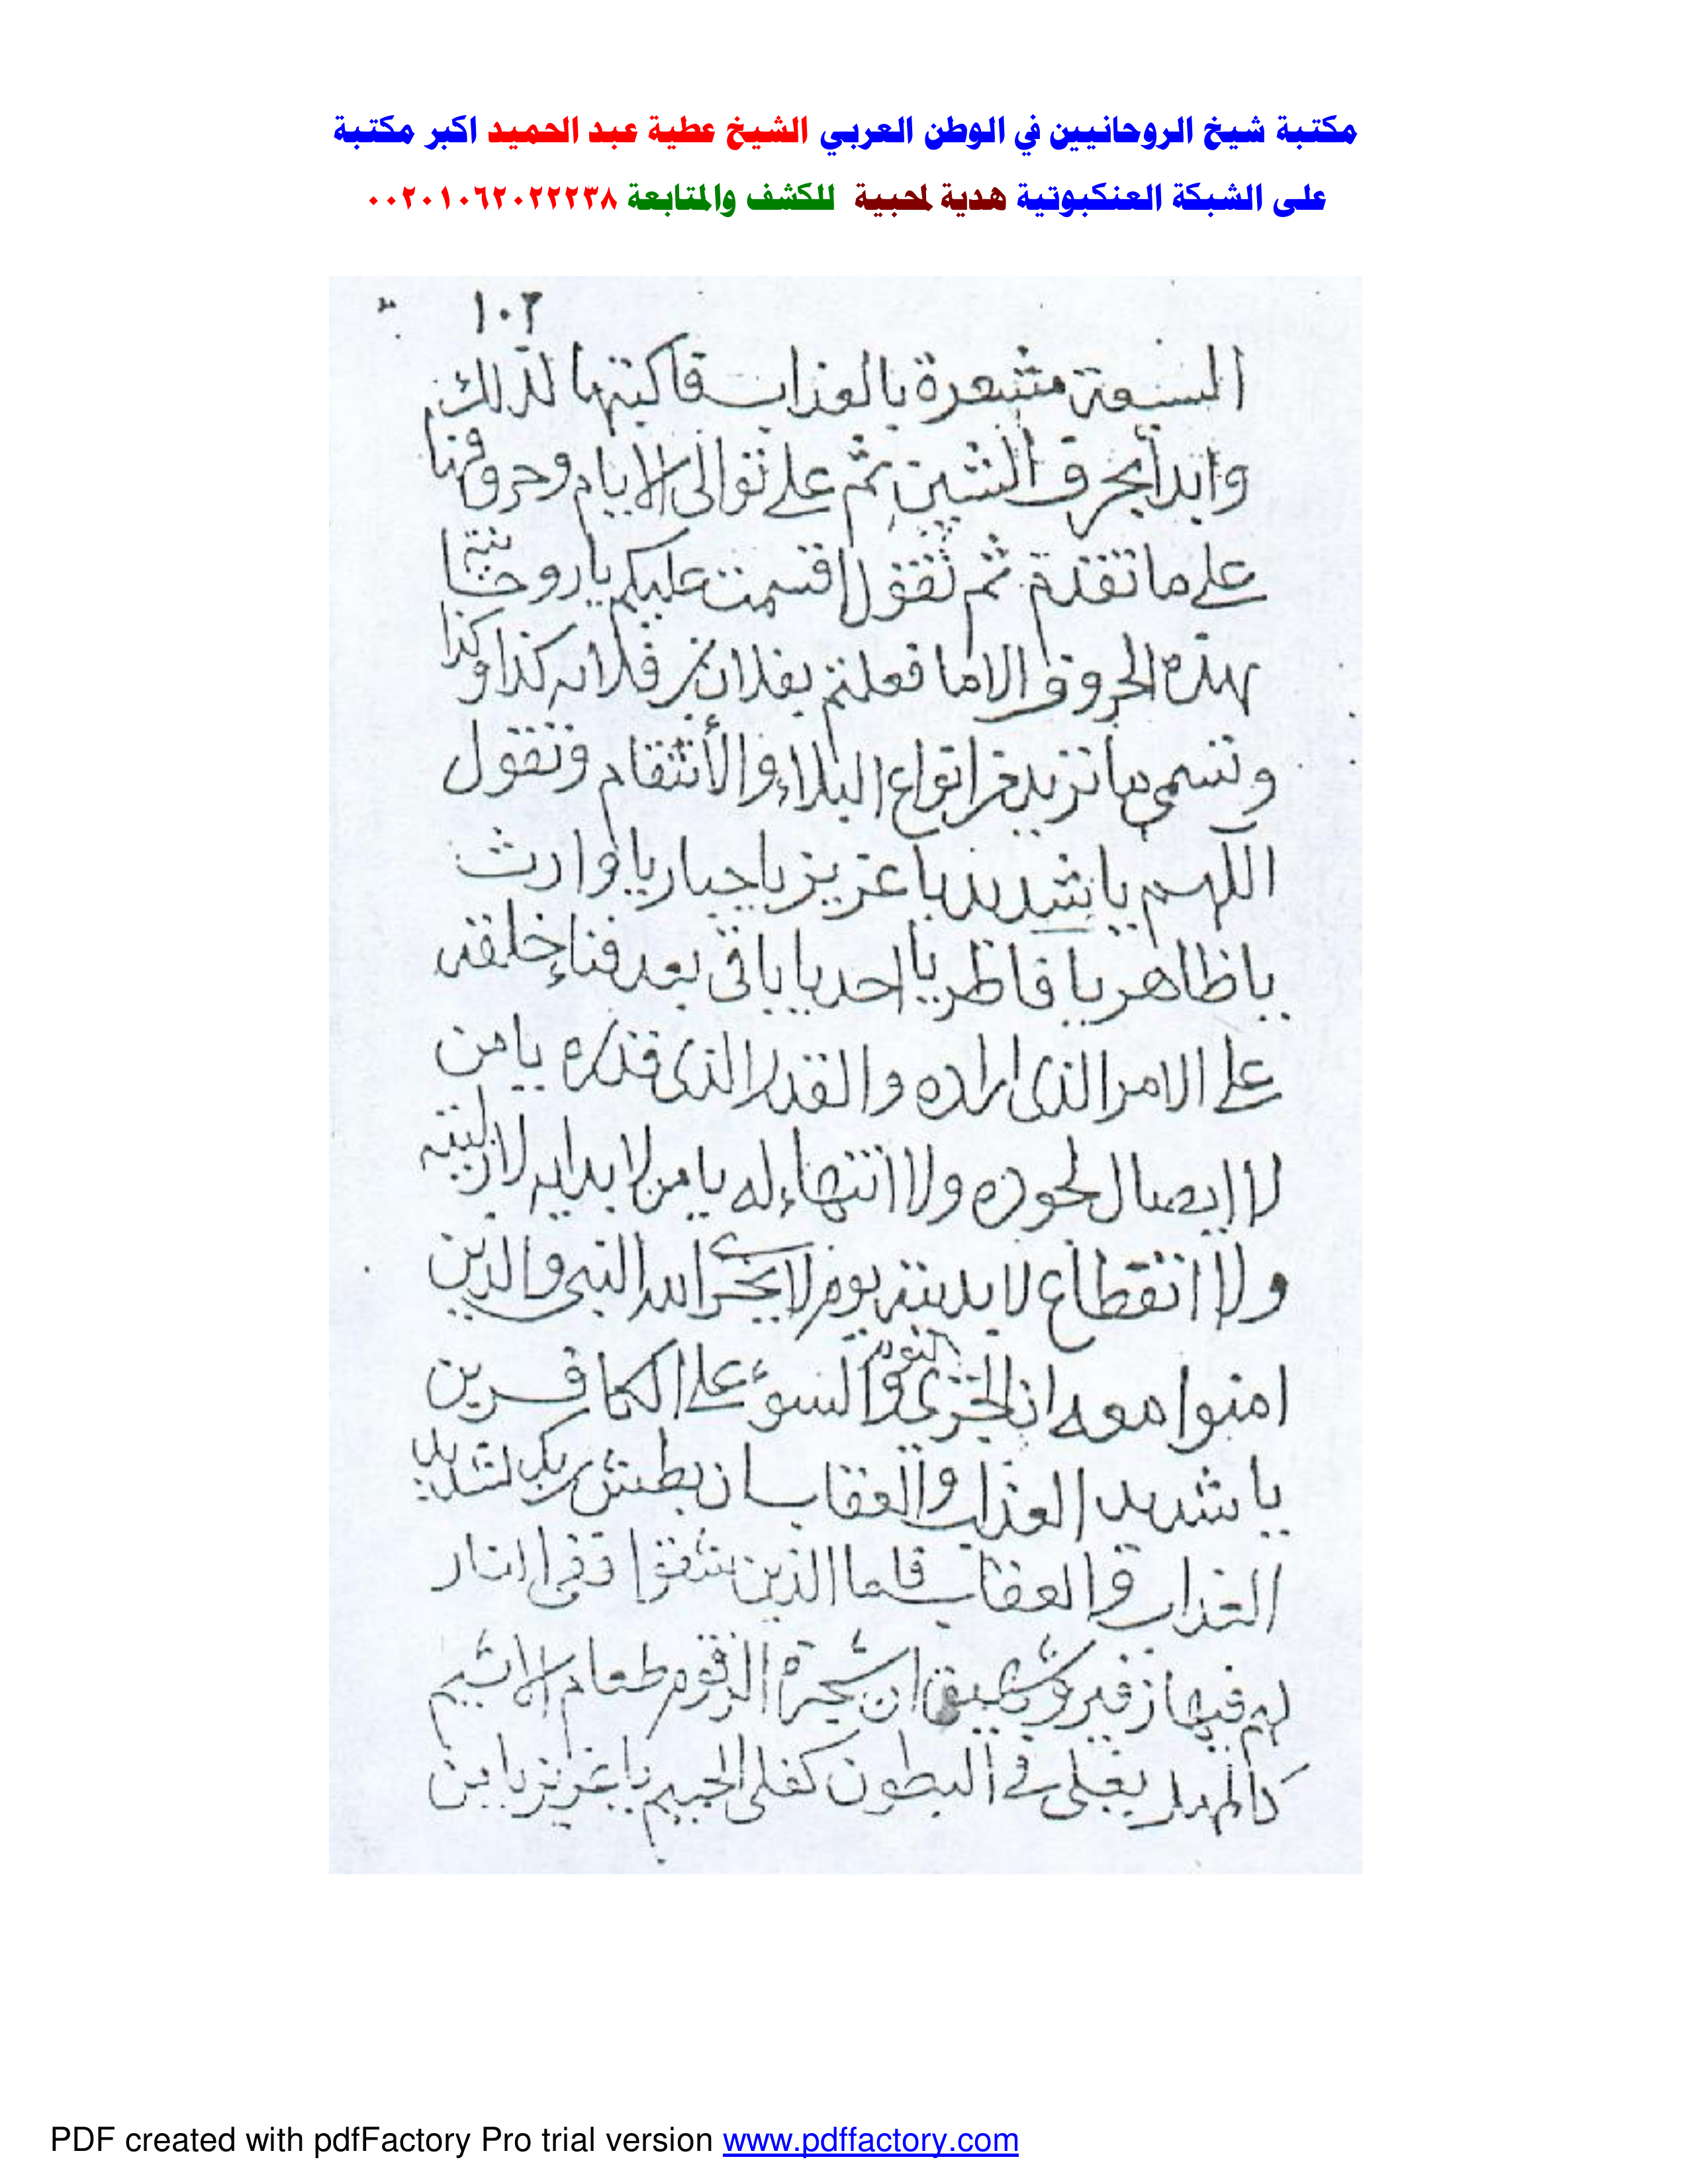 مكتبة شيخ الروحانيين في الوطن العربي الشيخ عطية عبد الحميد اكبر مكتبة
على الشبكة العنكبوتية هدية لمحبية للكشف والمتابعة ٠٠٢٠١٠٦٢٠٢٢٢٣٨
١٠٢
السبعة مشعرة بالعذاب فاكتبها لذلك
وابدأ بحرف الشين ثم على توالى الايام وحروفها
على ما تقدم ثم تقول اقسمت عليكم يا روحانية
بهذه الحروف الا ما فعلتم بفلان بن فلانه كذا وكذا
وتسمى ما تريد من انواع البلاء والأنتقام وتقول
اللهم يا شديد يا عزيز يا جبار يا وارث
يا ظاهر يا فاطر يا احد يا باقى بعد فناء خلقه
على الامر الذى اراده والقدر الذى قدره يا من
لا ولا انتهاء له يا من لا بدايه لازليته
ولا انقطاع لا بديته يوم لا يخزى الله النبى والذين
امنوا معه ان الخزى اليوم والسوء على الكافرين
يا شديد العذاب والعقاب ان بطش ربك لشديد
العذاب والعقاب فاما الذين شقوا ففى النار
لهم فيها زفير وشهيق ان شجرة الزقوم طعام الاثيم
كالمهل يغلى فى البطون كغلى الحميم يا عزيز يا من
PDF created with pdfFactory Pro trial version www.pdffactory.com